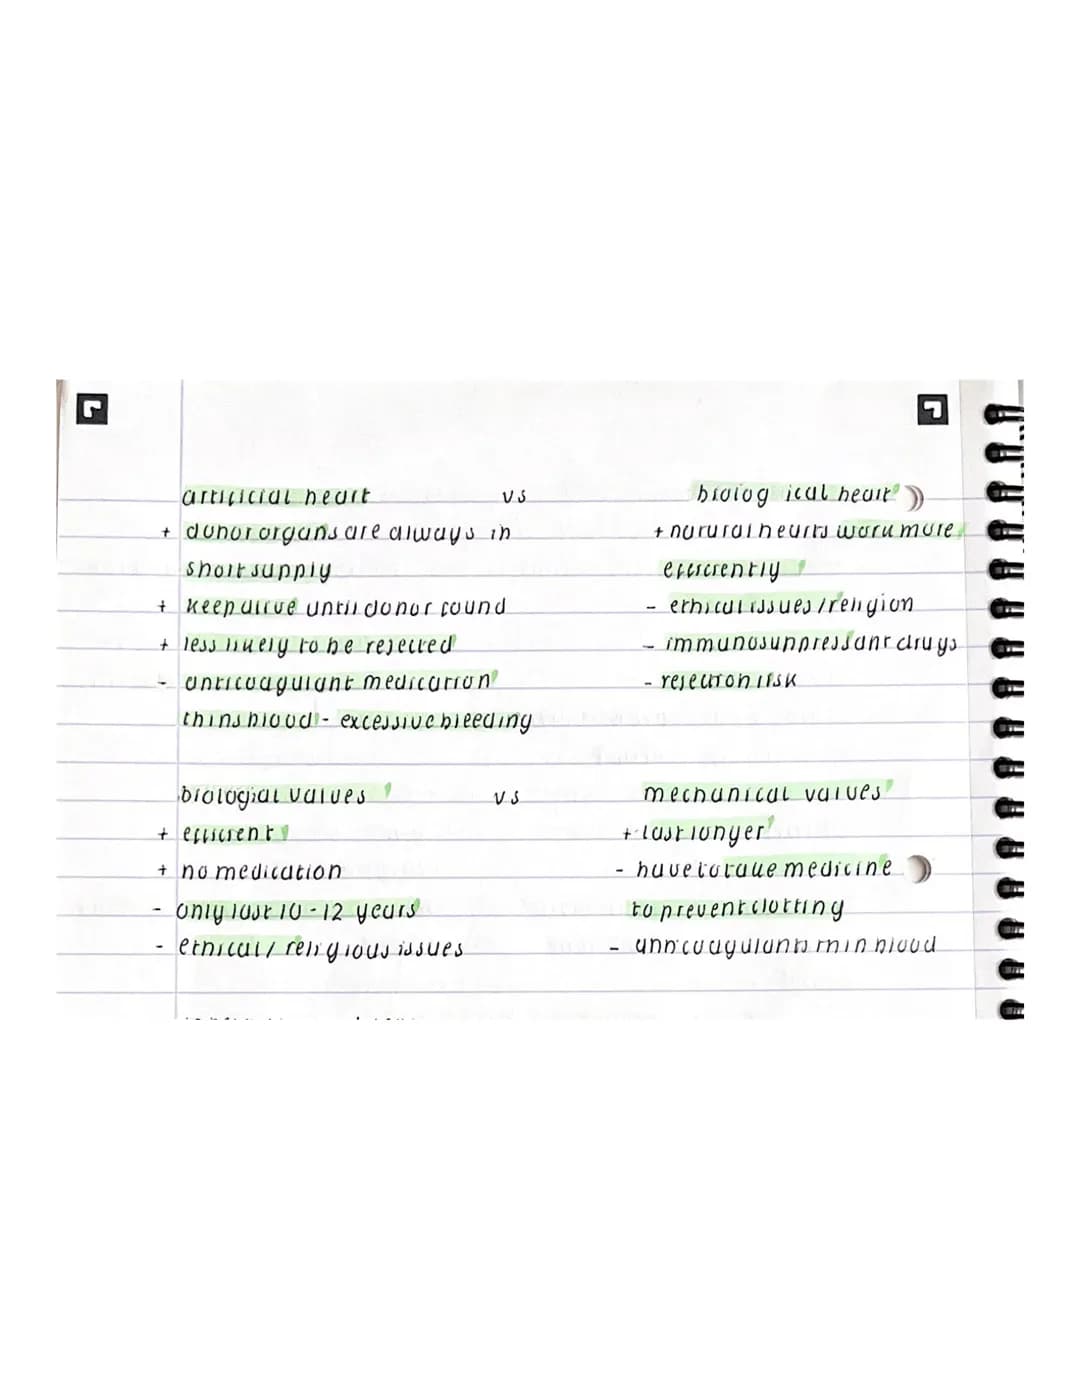 artificial heart vs biological heart
+ donor organs are always in + natural hearts work more
short supply efficiently
+ keep alive until donor found - ethical issues / religion
+ less likely to be rejected - immunosuppressant drugs
- anticoagulant medication - rejection risk
thins blood - excessive bleeding
biologial valves vs mechanical valves
+ efficient + last longer
+ no medication - have to take medicine
- only last 10-12 years to prevent clotting
- ethical / religious issues - anticoagulants thin blood